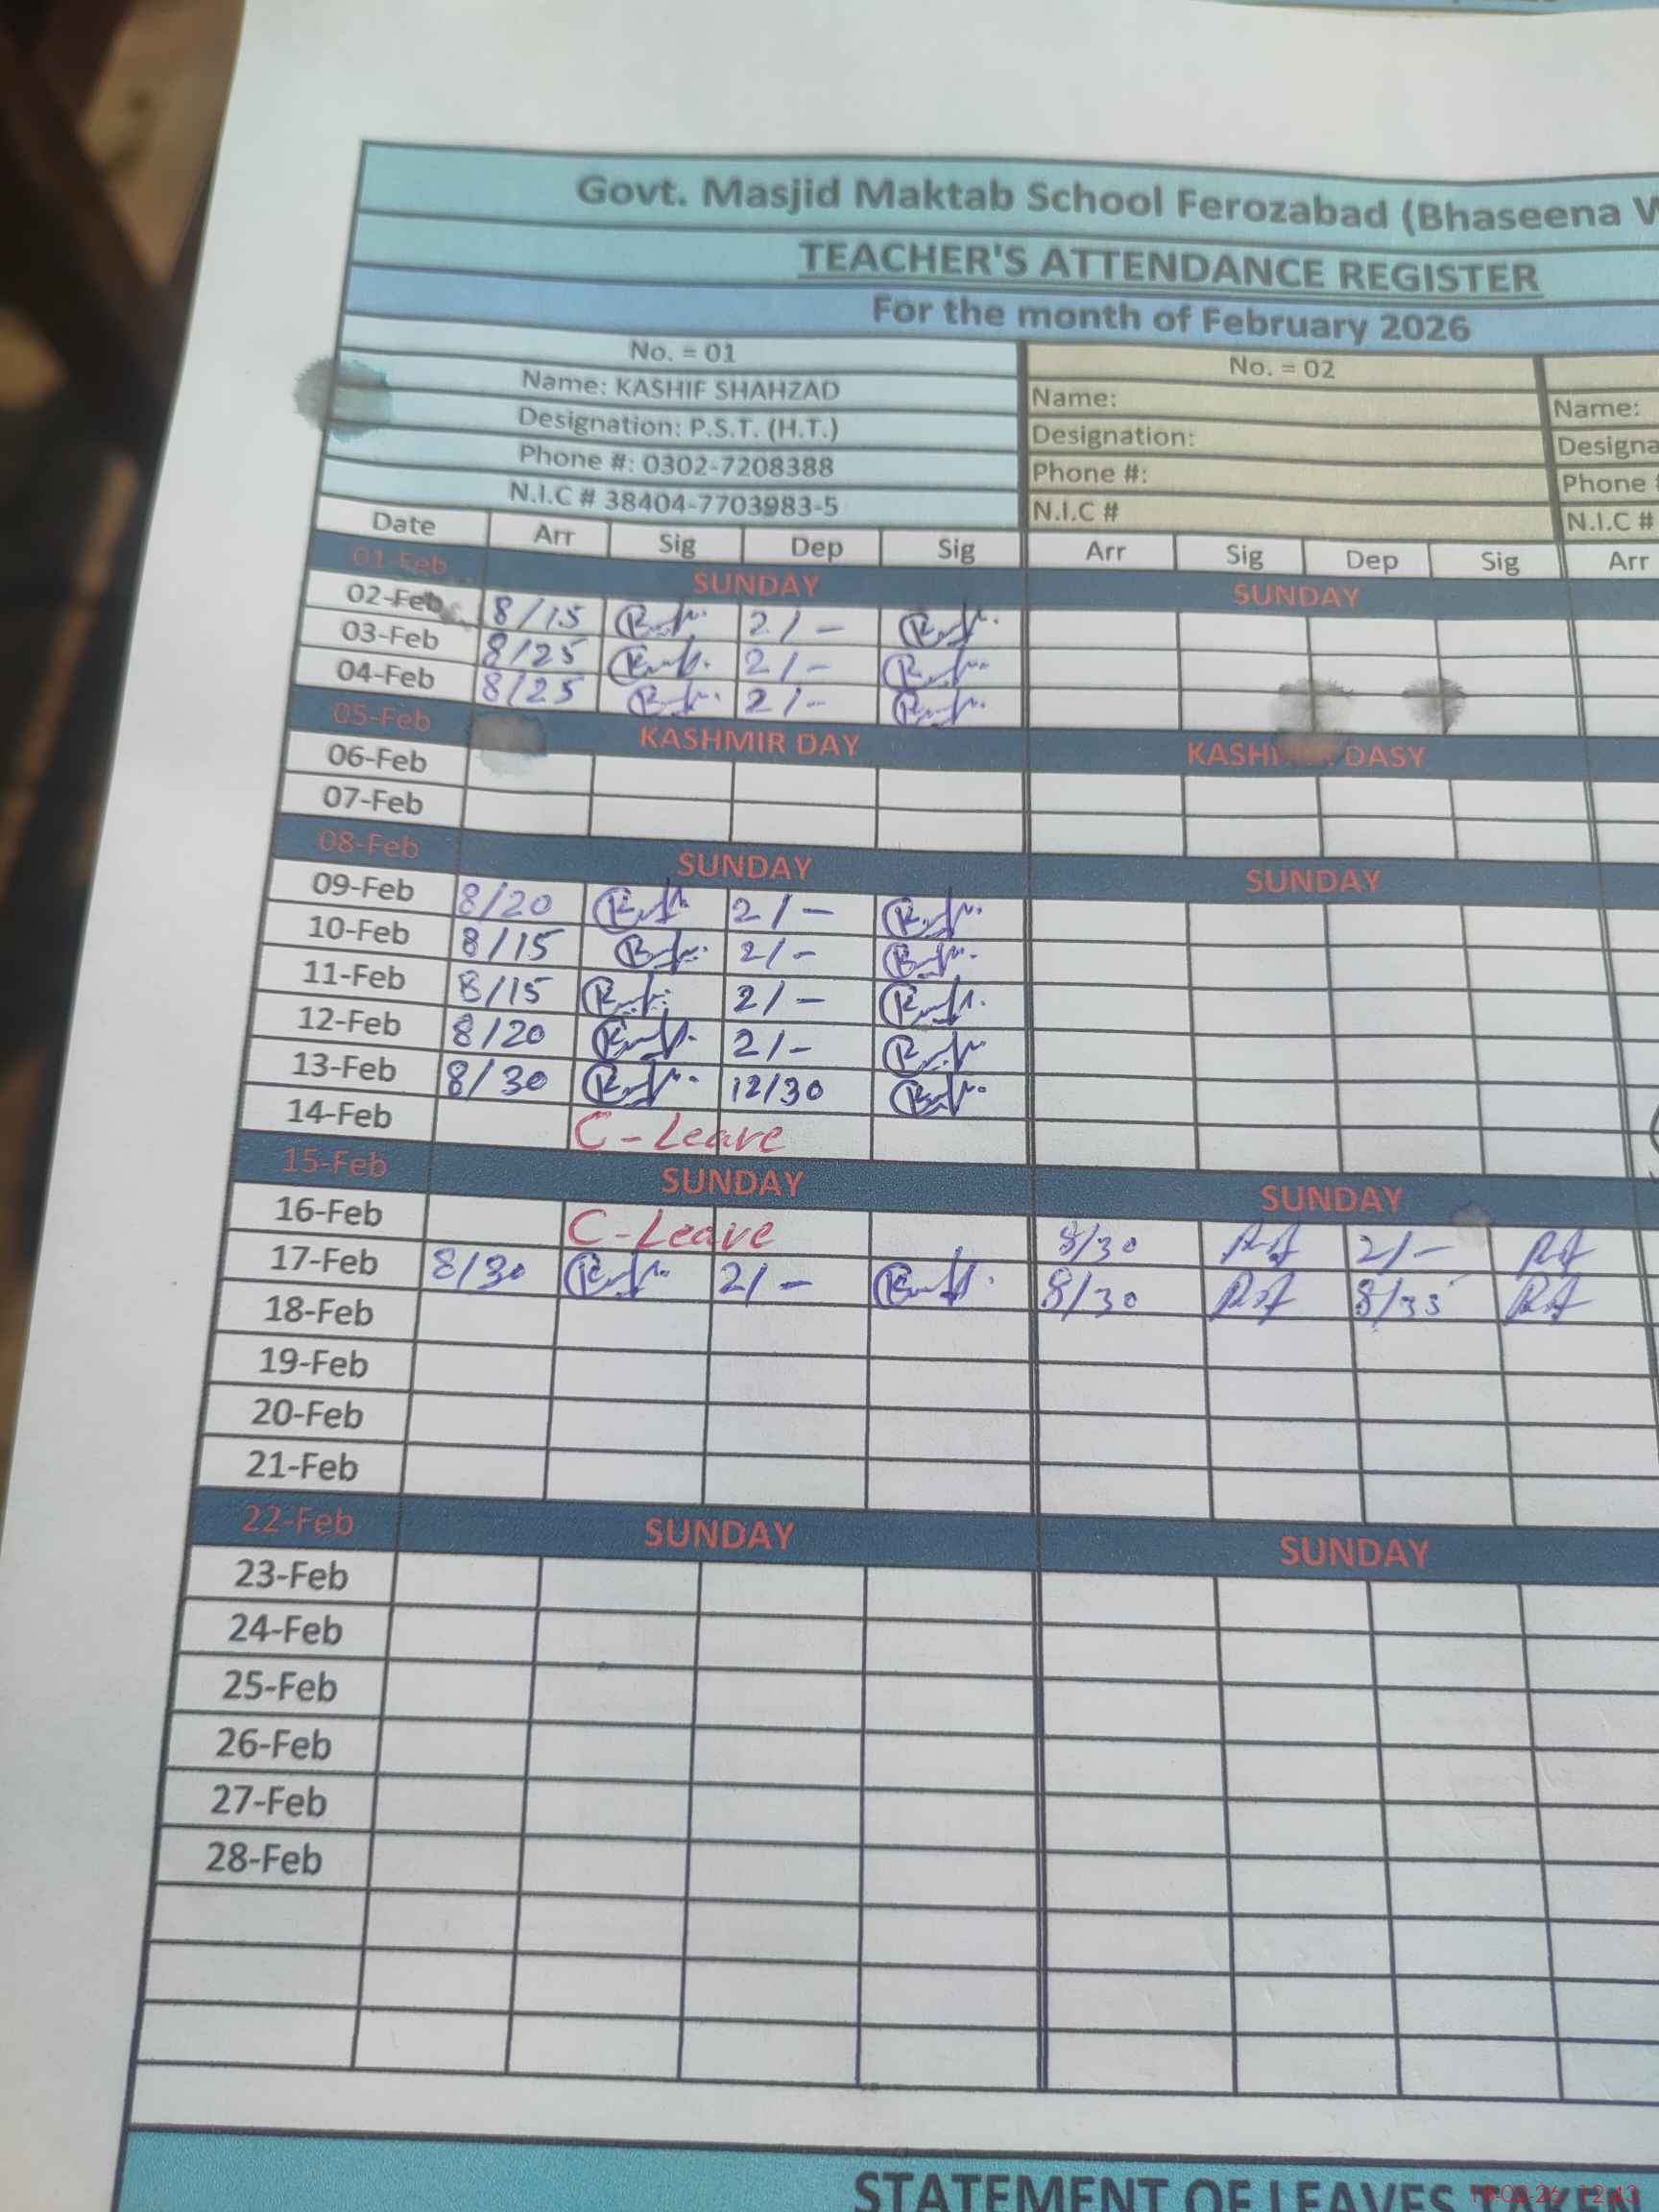 Govt. Masjid Maktab School Ferozabad (Bhaseena
TEACHER'S ATTENDANCE REGISTER
For the month of February 2026
No. = 01 No. = 02
Name: KASHIF SHAHZAD Name: Name:
Designation: P.S.T. (H.T.) Designation: Designa
Phone #: 0302-7208388 Phone #: Phone
N.I.C # 38404-7703983-5 N.I.C # N.I.C #
Date Arr Sig Dep Sig Arr Sig Dep Sig Arr
01-Feb SUNDAY SUNDAY
02-Feb 8/15 2/-
03-Feb 8/25 2/-
04-Feb 8/25 2/-
05-Feb KASHMIR DAY KASHI DASY
06-Feb
07-Feb
08-Feb SUNDAY SUNDAY
09-Feb 8/20 2/-
10-Feb 8/15 2/-
11-Feb 8/15 2/-
12-Feb 8/20 2/-
13-Feb 8/30 12/30
14-Feb C-Leave
15-Feb SUNDAY SUNDAY
16-Feb C-Leave 8/30 2/-
17-Feb 8/30 2/- 8/30 8/35
18-Feb
19-Feb
20-Feb
21-Feb
22-Feb SUNDAY SUNDAY
23-Feb
24-Feb
25-Feb
26-Feb
27-Feb
28-Feb
STATEMENT OF LEAVES